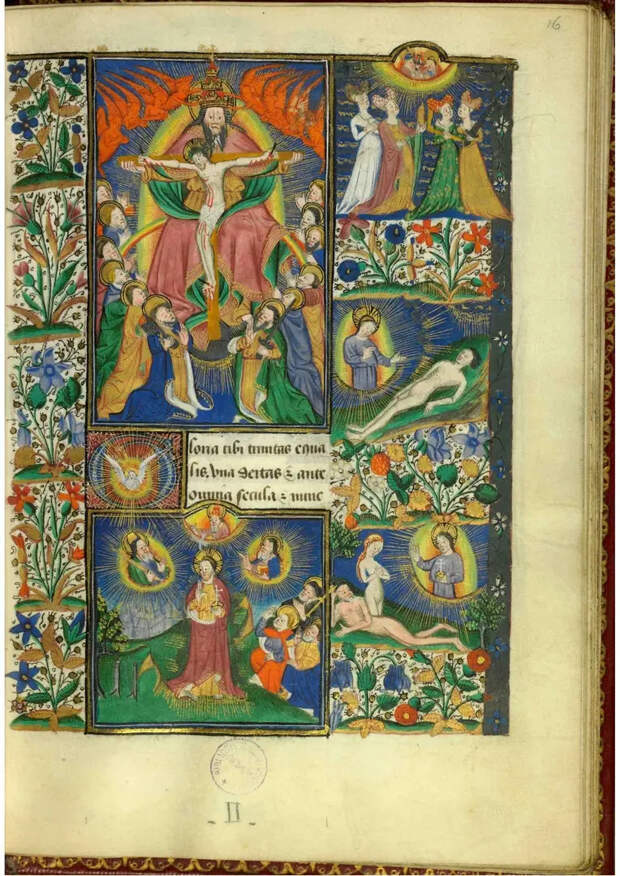 16
loria tibi trinitas equa
lis. Vna deitas & ante
omnia secula & nunc
- II -